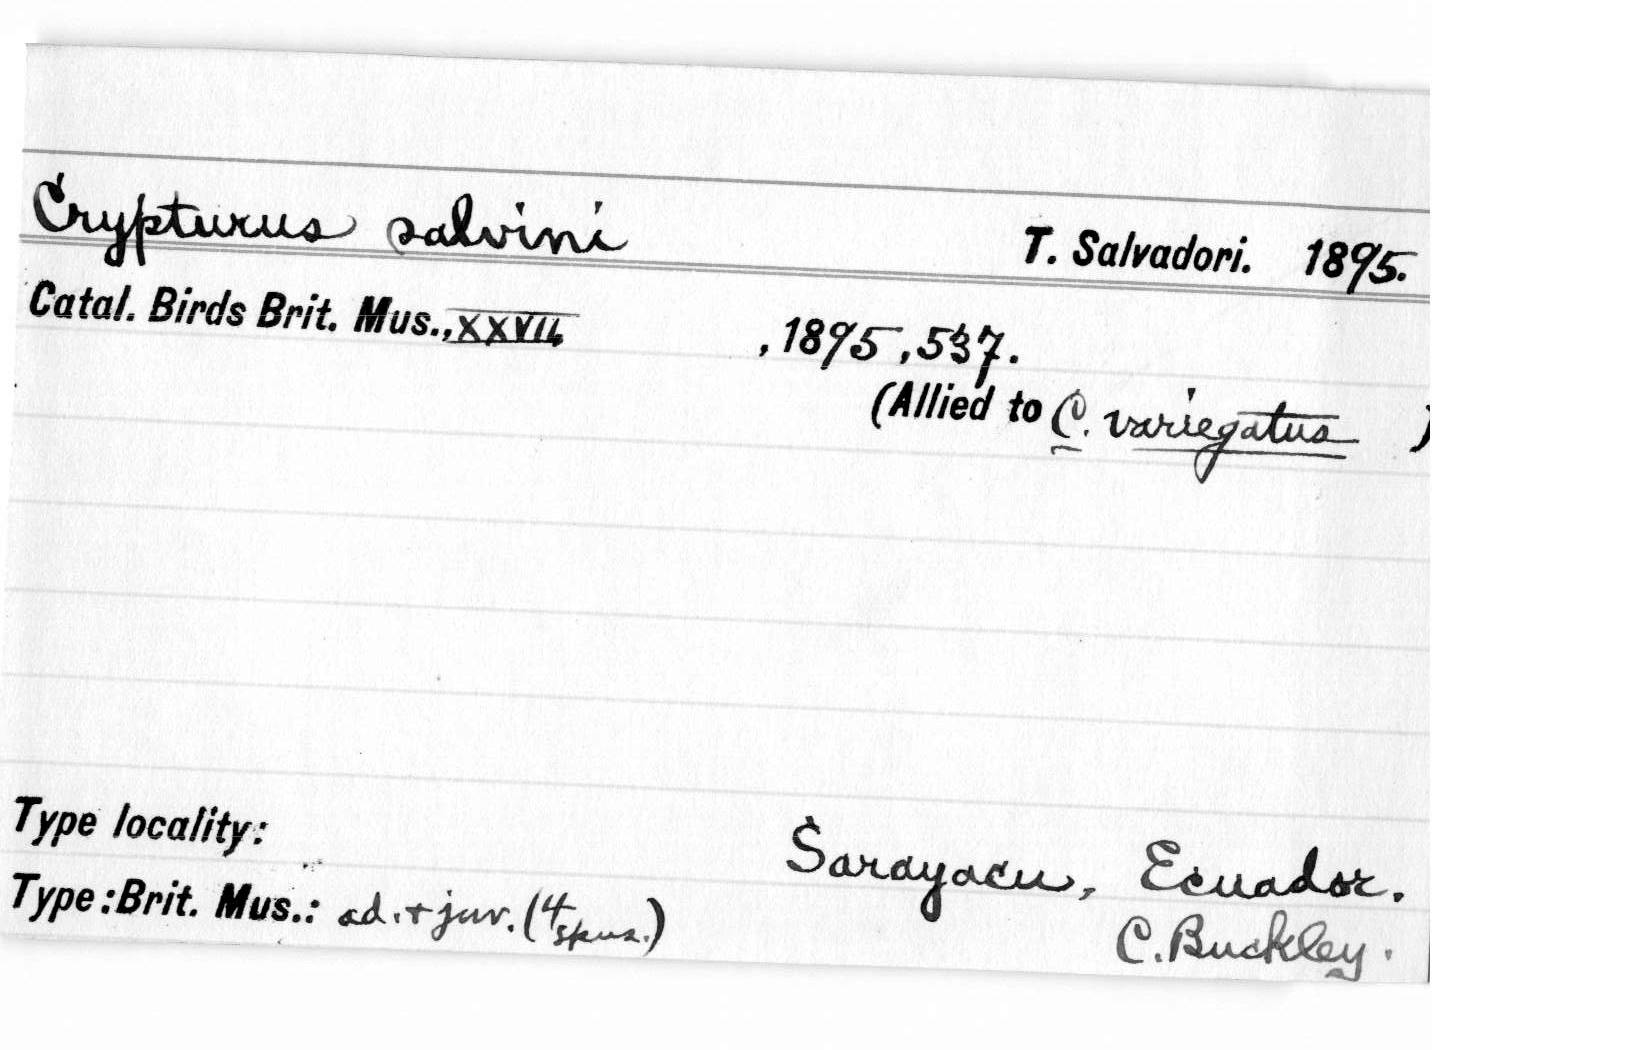 Crypturus salvini T. Salvadori. 1895.
Catal. Birds Brit. Mus., XXVII, , 1895, 537.
(Allied to C. variegatus )
Type locality: Sarayacu, Ecuador.
Type: Brit. Mus.: ad. + juv. (4 spms.) C. Buckley.